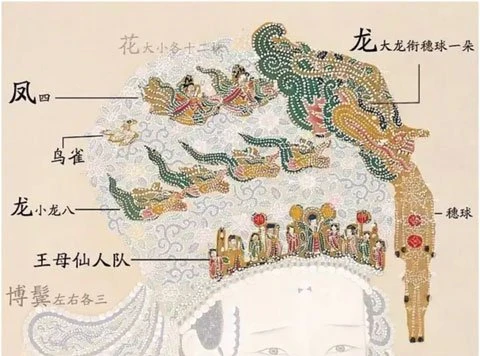 花 大小各十二株
龙 大龙衔穗球一朵
凤 四
鸟雀
龙 小龙八
穗球
王母仙人队
博鬓 左右各三